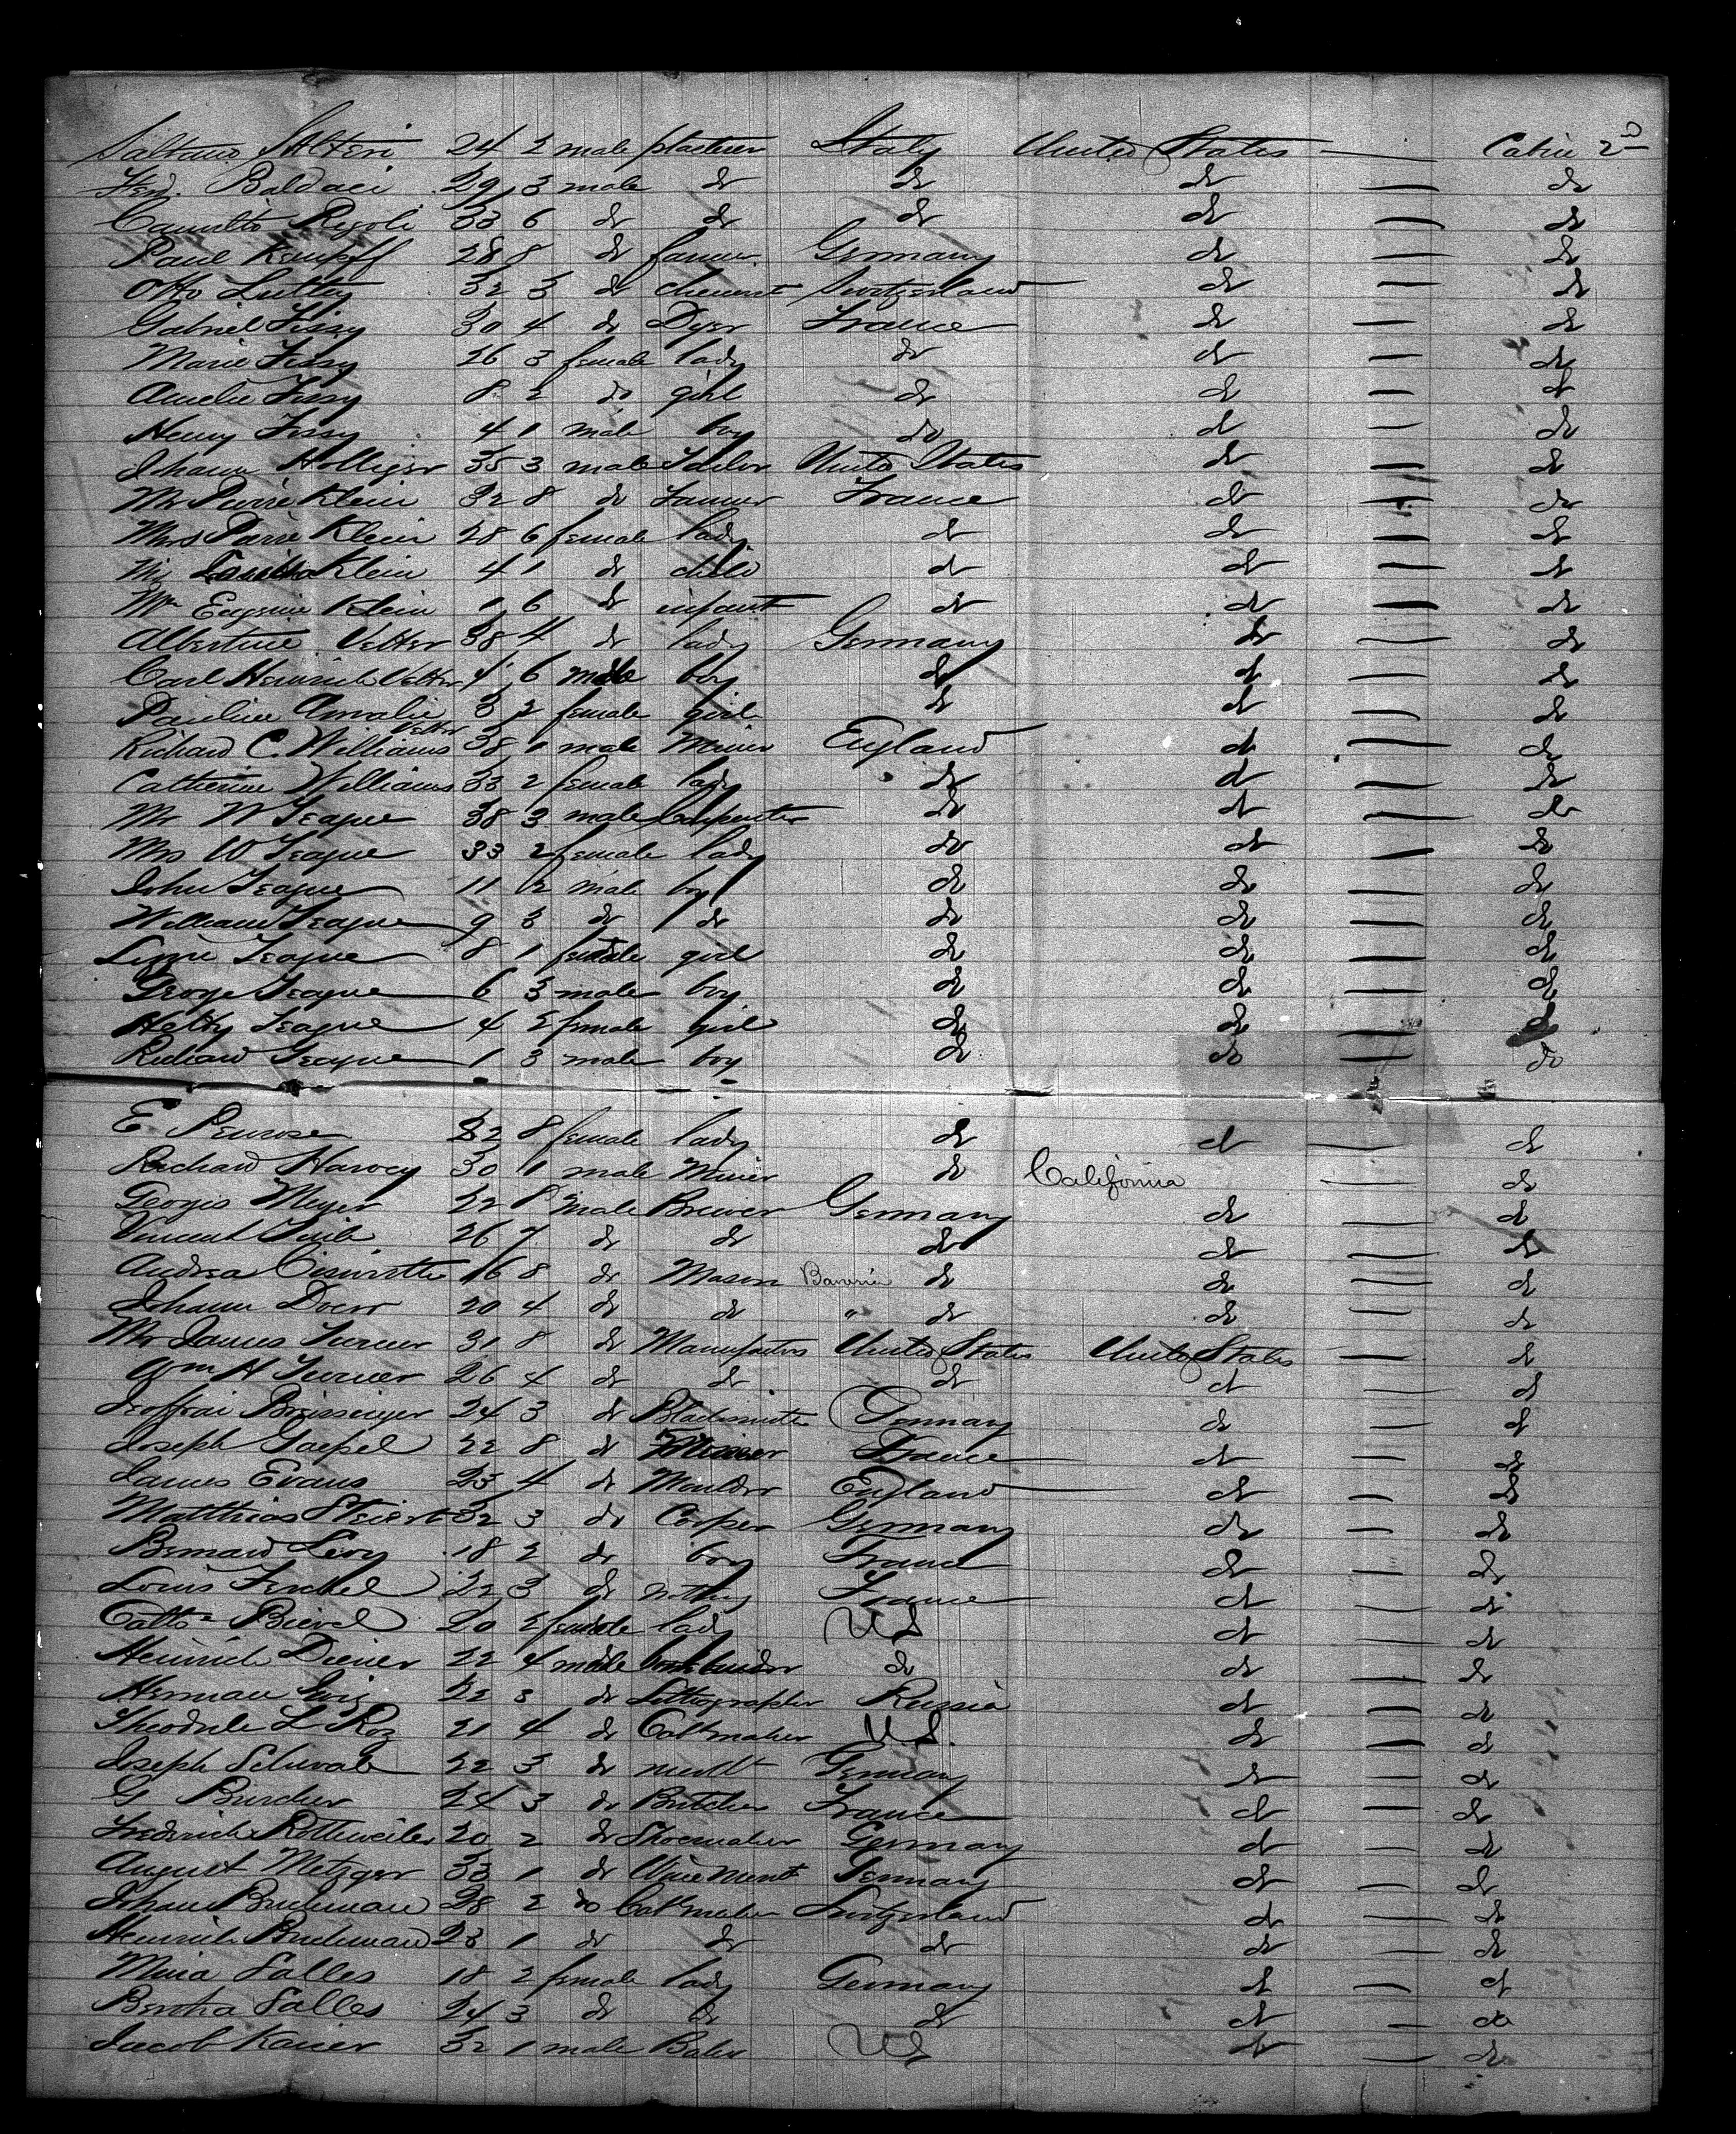 Saltano Alteri 24 2 male plasterer Italy United States — Cabin 2d
Ferd. Baldaci 29 3 male do do do — do
Camillo Rigoli 33 6 do do do do — do
Paul Kempff 28 8 do farmer Germany do — do
Otto Lutty 32 3 do chemist Switzerland do — do
Gabriel Fissy 30 4 do Dyer France do — do
Marie Fissy 26 3 female lady do do — do
Amelie Fissy 8 2 do girl do do — do
Henry Fissy 4 1 male boy do do — do
Johann Holliger 35 3 male Tailor United States do — do
Mr Pierre Klein 32 8 do Farmer France do — do
Mrs Pierre Klein 28 6 female lady do do — do
Klein 4 1 do child do do — do
Eugenie Klein 1 6 do infant do do — do
Albertine Vetter 38 4 do lady Germany do — do
Carl Heinrich Vetter 4 6 male boy do do — do
Pauline Amalie Vetter 3 2 female girl do do — do
Richard C. Williams 38 1 male Miner England do — do
Catherine Williams 33 2 female lady do do — do
Mr W Teague 38 3 male Carpenter do do — do
Mrs W Teague 33 2 female lady do do — do
John Teague 11 2 male boy do do — do
William Teague 9 3 do do do do — do
Lizzie Teague 8 1 female girl do do — do
George Teague 6 3 male boy do do — do
Hetty Teague 4 2 female girl do do — do
Richard Teague 1 3 male boy do do — do
E Penrose 22 8 female lady do do — do
Richard Harvey 30 1 male Miner do California — do
Georges Meyer 22 8 male Brewer Germany do — do
Vincent 26 7 do do do do — do
Andrea 16 8 do Mason Bavaria do do — do
Johann Doerr 20 4 do do " do do — do
Mr James Turner 31 8 do Manufacters United States United States — do
Wm H Turner 26 4 do do do do — do
Breisinger 24 3 do Blacksmith Germany do — do
Joseph Gaepel 22 8 do France do — do
James Evans 23 4 do Moulder England do — do
Matthias Steiert 32 3 do Cooper Germany do — do
Bernard Levy 18 2 do boy France do — do
Louis Ferchel 22 3 do nothing France do — do
Cathe Bievel 20 2 female lady US do — do
Heinrich Diener 22 4 male bookbinder do do — do
Herman 22 3 do Lithographer Russia do — do
Theodule L Roz 21 4 do Cabtmaker U.S. do — do
Joseph Schwab 22 3 do mercht Germany do — do
G Burcher 24 3 do Butcher France do — do
Frederich Rothweiler 20 2 do Shoemaker Germany do — do
August Metzger 33 1 do Wine mercht Germany do — do
Johann Bruhman 28 2 do Cabtmaker Switzerland do — do
Heinrich Bruhman 23 1 do do do do — do
Mina Salles 18 2 female lady Germany do — do
Bertha Salles 24 3 do do do do — do
Jacob Kaiser 32 1 male Baker US do — do